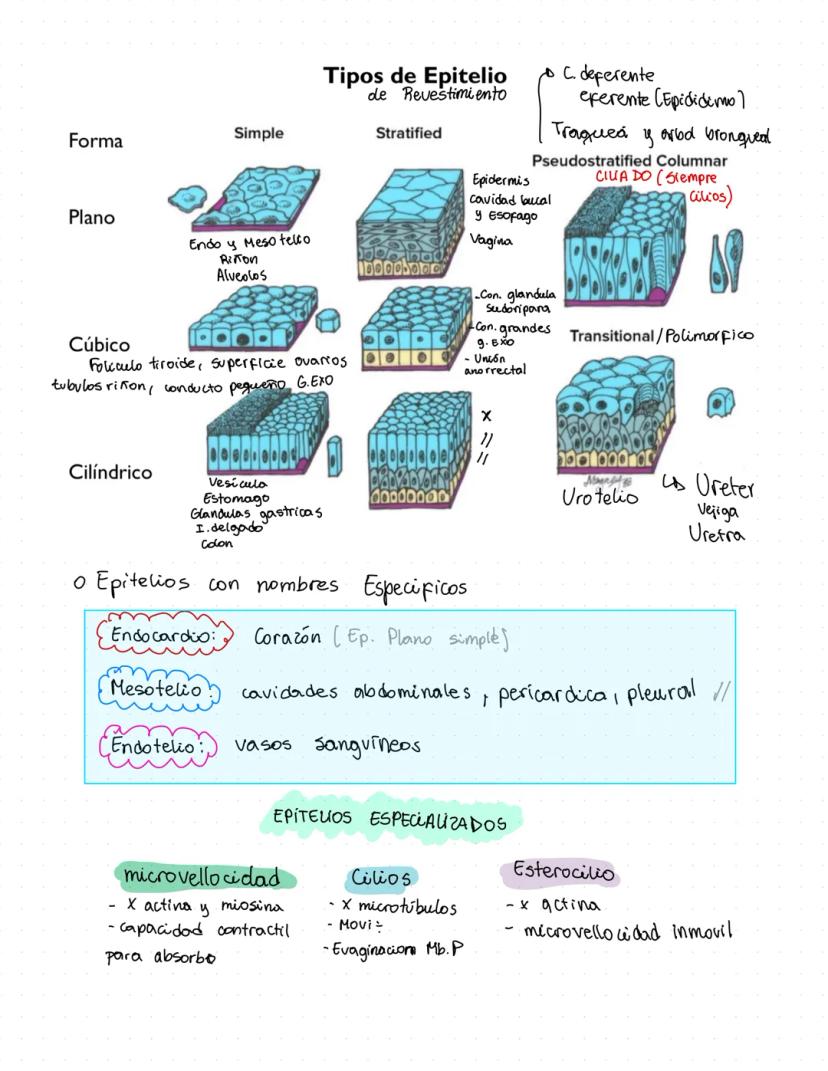 Tipos de Epitelio
de Revestimiento
C. deferente
eferente (Epididimo)
Traquea y arbol bronqueal
Forma
Simple
Stratified
Pseudostratified Columnar
CILIADO (Siempre
cilios)
Plano
Endo y Mesotelio
Riñon
Alveolos
Epidermis
cavidad bucal
y Esofago
Vagina
Cúbico
Foliculo tiroide, superficie ovarios
tubulos riñon, conducto pequeño G.EXO
-Con. glandula
sudoripara
-Con. grandes
g. EXO
- Unión
anorrectal
Transitional/Polimorfico
Cilíndrico
Vesícula
Estomago
Glandulas gastricas
I. delgado
Colon
x
//
//
Urotelio
↳ Ureter
Vejiga
Uretra
o Epitelios con nombres Especificos
Endocardio: Corazón (Ep. Plano simple)
Mesotelio: cavidades abdominales, pericardica, pleural //
Endotelio: vasos sanguíneos
EPÍTELIOS ESPECIALIZADOS
microvellocidad
- x actina y miosina
- capacidad contractil
para absorbo
Cilios
- x microtúbulos
- Movi÷
- Evaginacion Mb.P
Esterocilio
- x actina
- microvellocidad inmovil